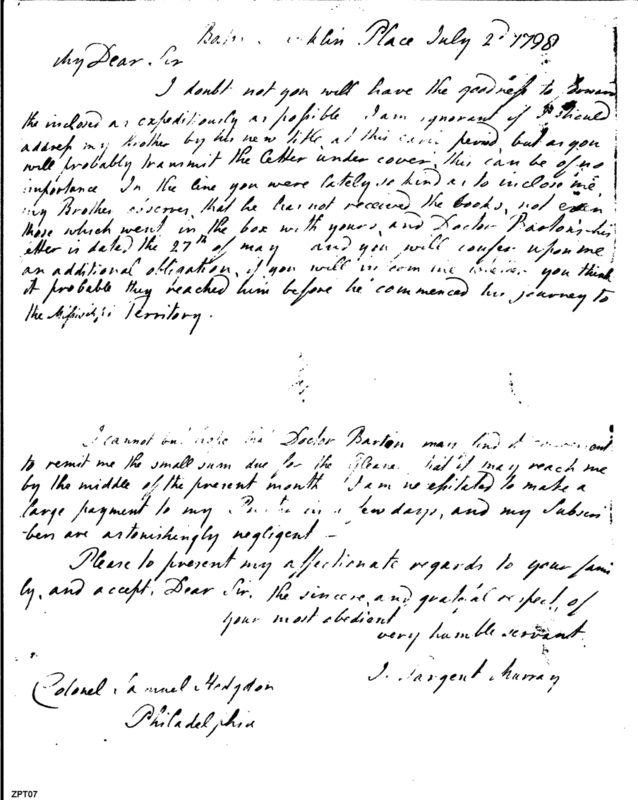 Place July 2d 1798
My Dear Sir
I doubt not you will have the goodness to
the inclosed as expeditiously as possible I am ignorant if I should
address my Brother by his new title, at this period, but as you
will probably transmit the letter under cover, this can be of no
importance In the line you were lately so kind as to inclose me
my Brother observes, that he has not received the books, not even
those which went in the box with yours, and Doctor Bartons his
letter is dated the 27th of may and you will confer upon me
an additional obligation, if you will inform me you think
it probable they reached him before he commenced his journey to
the Mississippi Territory.
I cannot but hope that Doctor Barton may find it convenient
to remit me the small sum due for the that it may reach me
by the middle of the present month I am necessitated to make a
large payment to my in a few days, and my Subscri
bers are astonishingly negligent —
Please to present my affectionate regards to your fami
ly, and accept, Dear Sir, the sincere, and grateful respect, of
your most obedient
very humble servant
J. Sargent Murray
Colonel Samuel Hodgdon
Philadelphia
ZPT07